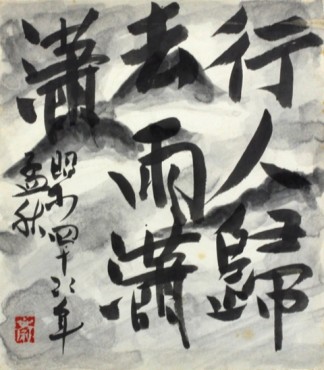 行人歸
去雨瀟
瀟
昭和四十年
孟秋